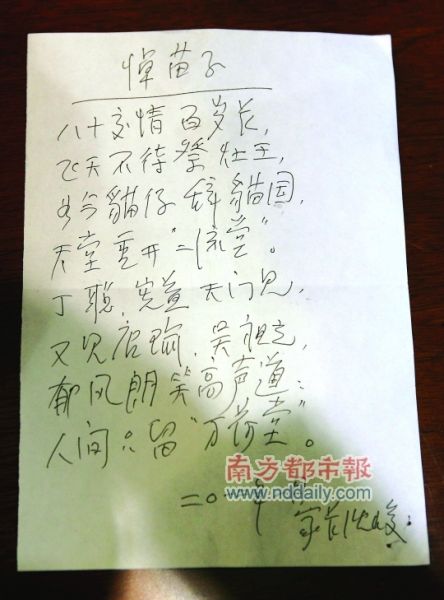 悼苗子
八十交情百岁长，
飞天不待祭灶王，
如今貓仔辞貓国，
天堂重开“二流堂”。
丁聪，宪益天门见，
又见启瑜，吴祖光，
郁风朗笑高声道：
人间只留“万荷堂”。
南方都市報
www.nddaily.com
二〇一